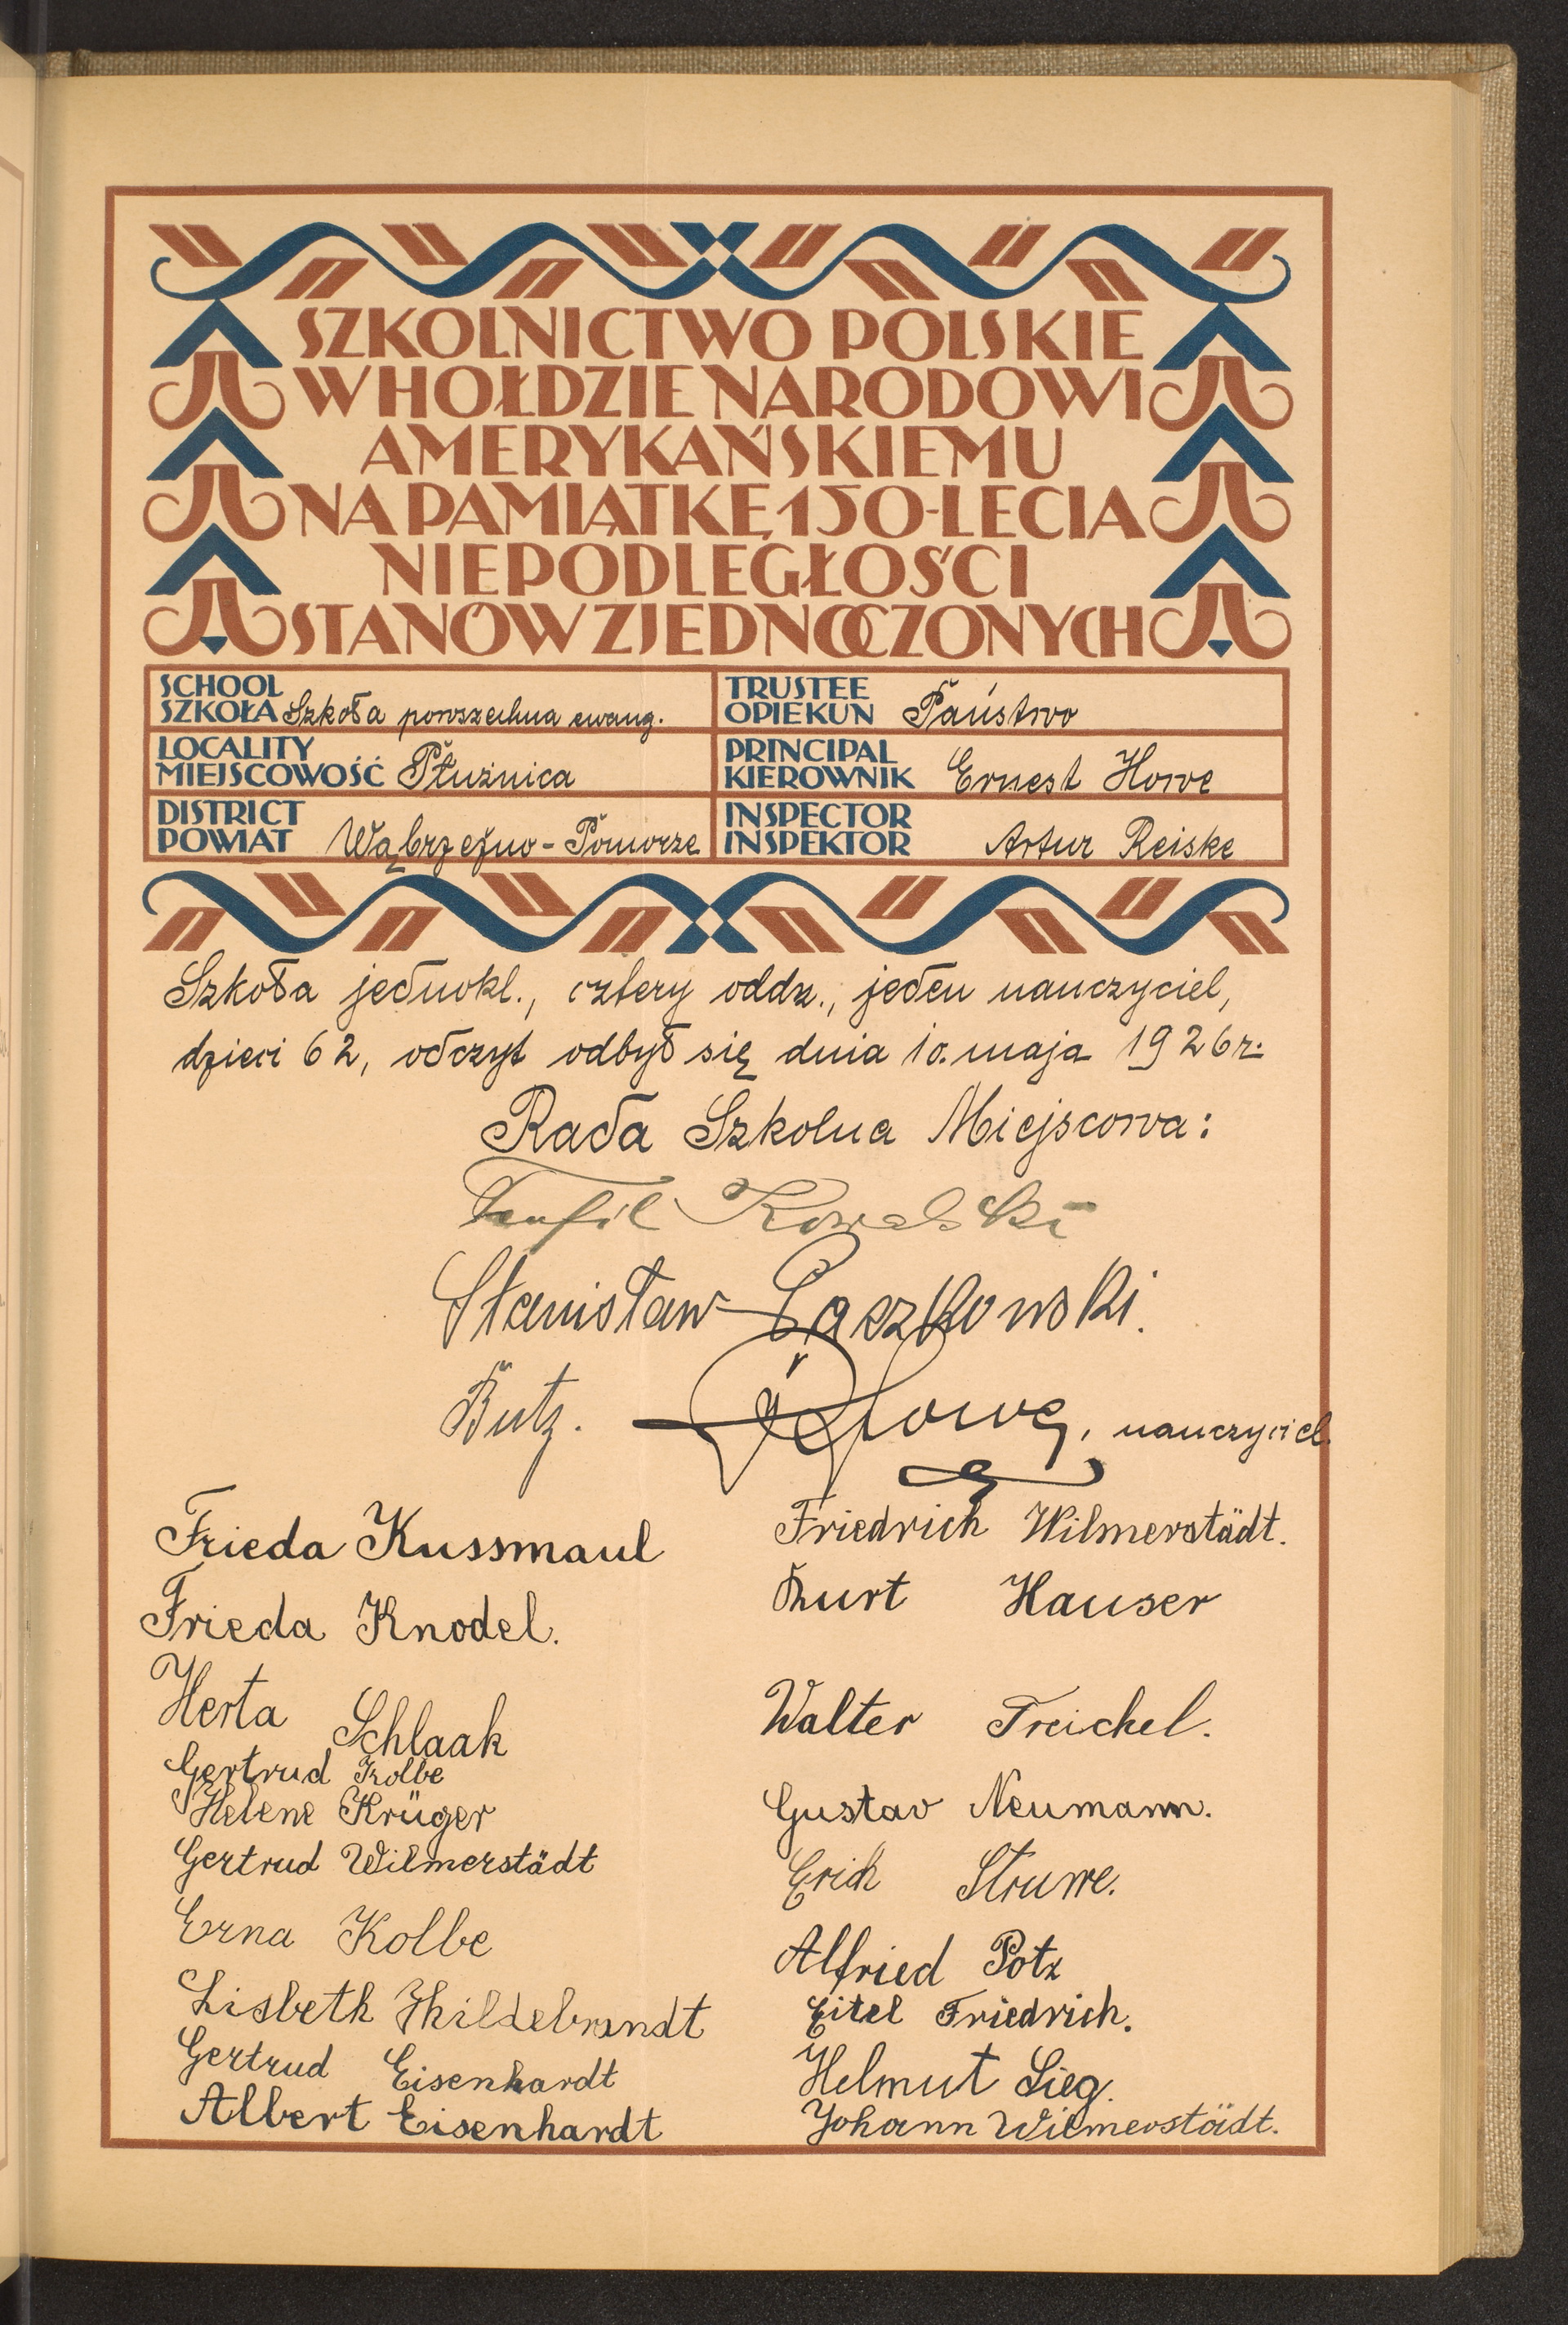 SZKOLNICTWO POLSKIE
W HOŁDZIE NARODOWI
AMERYKAŃSKIEMU
NA PAMIĄTKĘ 150-LECIA
NIEPODLEGŁOŚCI
STANÓW ZJEDNOCZONYCH
SCHOOL
SZKOŁA Szkoła powszechna ewang.
TRUSTEE
OPIEKUN Państwo
LOCALITY
MIEJSCOWOŚĆ Płużnica
PRINCIPAL
KIEROWNIK Ernest Howe
DISTRICT
POWIAT Wąbrzeźno - Pomorze
INSPECTOR
INSPEKTOR Artur Reiske
Szkoła jednokl., cztery oddz., jeden nauczyciel,
dzieci 62, odczyt odbył się dnia 10. maja 1926 r.
Rada Szkolna Miejscowa:
Teofil Kowalski
Stanisław Łaczkowski.
Butz. Howe, nauczyciel.
Frieda Kussmaul
Frieda Knodel.
Herta Schlaak
Gertrud Kolbe
Helene Krüger
Gertrud Wilmerstädt
Erna Kolbe
Lisbeth Hildebrandt
Gertrud Eisenhardt
Albert Eisenhardt
Friedrich Wilmerstädt.
Kurt Hauser
Walter Treichel.
Gustav Neumann.
Erich Struwe.
Alfried Potz
Eitel Friedrich.
Helmut Sieg.
Johann Wilmerstädt.